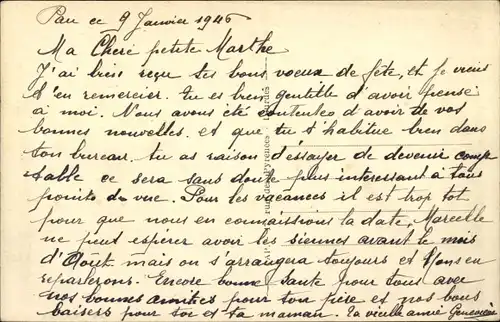 Pau ce 9 Janvier 1946
Ma Chère petite Marthe
J'ai bien reçu tes bons voeux de fête, et je viens
t'en remercier. tu es bien gentille d'avoir pensé
à moi. Nous avons été contentes d'avoir de vos
bonnes nouvelles. et que tu t'habitue bien dans
ton bureau. tu as raison d'essayer de devenir comp
table ce sera sans doute plus interessant à tous
points de vue. Pour les vacances il est trop tot
pour que nous en connaissions la date, Marcelle
ne peut espérer avoir les siennes avant le mois
d'Aout mais on s'arrangera toujours et Nous en
reparlerons. Encore bonne santé pour tous avec
nos bonnes amitiés pour ton père et nos bons
baisers pour toi et ta maman. Ta vieille amie Genevieve